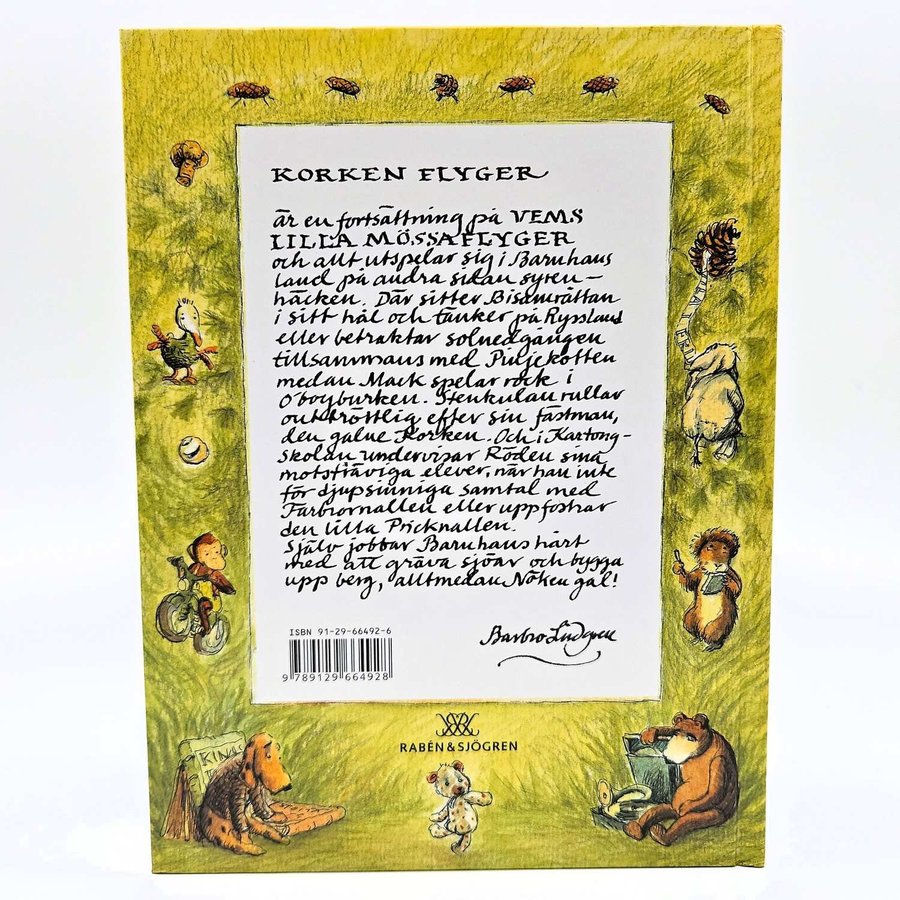 KORKEN FLYGER
är en fortsättning på VEMS
LILLA MÖSSA FLYGER
och allt utspelar sig i Barnhans
land på andra sidan syren-
häcken. Där sitter Bisamråttan
i sitt hål och tänker på Ryssland
eller betraktar solnedgången
tillsammans med Pinjekotten
medan Mack spelar rock i
O'boyburken. Stenkulan rullar
outtröttlig efter sin fästman,
den galne Korken. Och i Kartong-
skolan undervisar Röden sina
motsträviga elever, när han inte
för djupsinniga samtal med
Farbrornallen eller uppfostrar
den lilla Pricknallen.
Själv jobbar Barnhans hårt
med att gräva sjöar och bygga
upp berg, alltmedan Nöken gal!
Barbro Lindgren
ISBN 91-29-66492-6
9 789129 664928
RABÉN & SJÖGREN